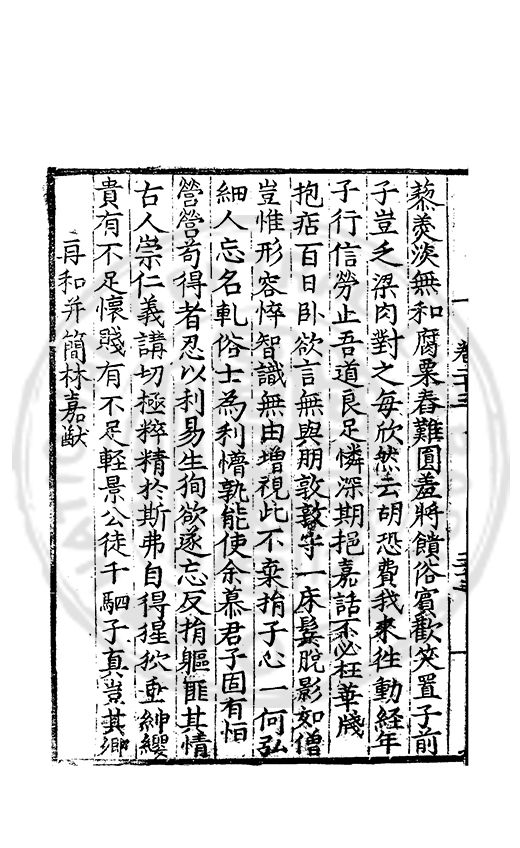 藜羮淡無和腐粟舂難圓羞將饋俗賓歡笑置子前
子豈乏梁肉對之每欣然去胡恐費我來徃動經年
子行信勞止吾道良足憐深期挹嘉話不必枉華牋
抱痁百日卧欲言無與朋敦敦守一床鬚脫影如僧
豈惟形容悴智識無由增視此不棄捐子心一何弘
細人忘名軋俗士為利懵孰能使余慕君子固有恒
營營苟得者忍以利易生狥欲遂忘反捐軀匪其情
古人崇仁義講切極粹精於斯弗自得猩狖垂紳纓
貴有不足懐賤有不足輕景公徒千駟子真豈其卿
再和并簡林嘉猷